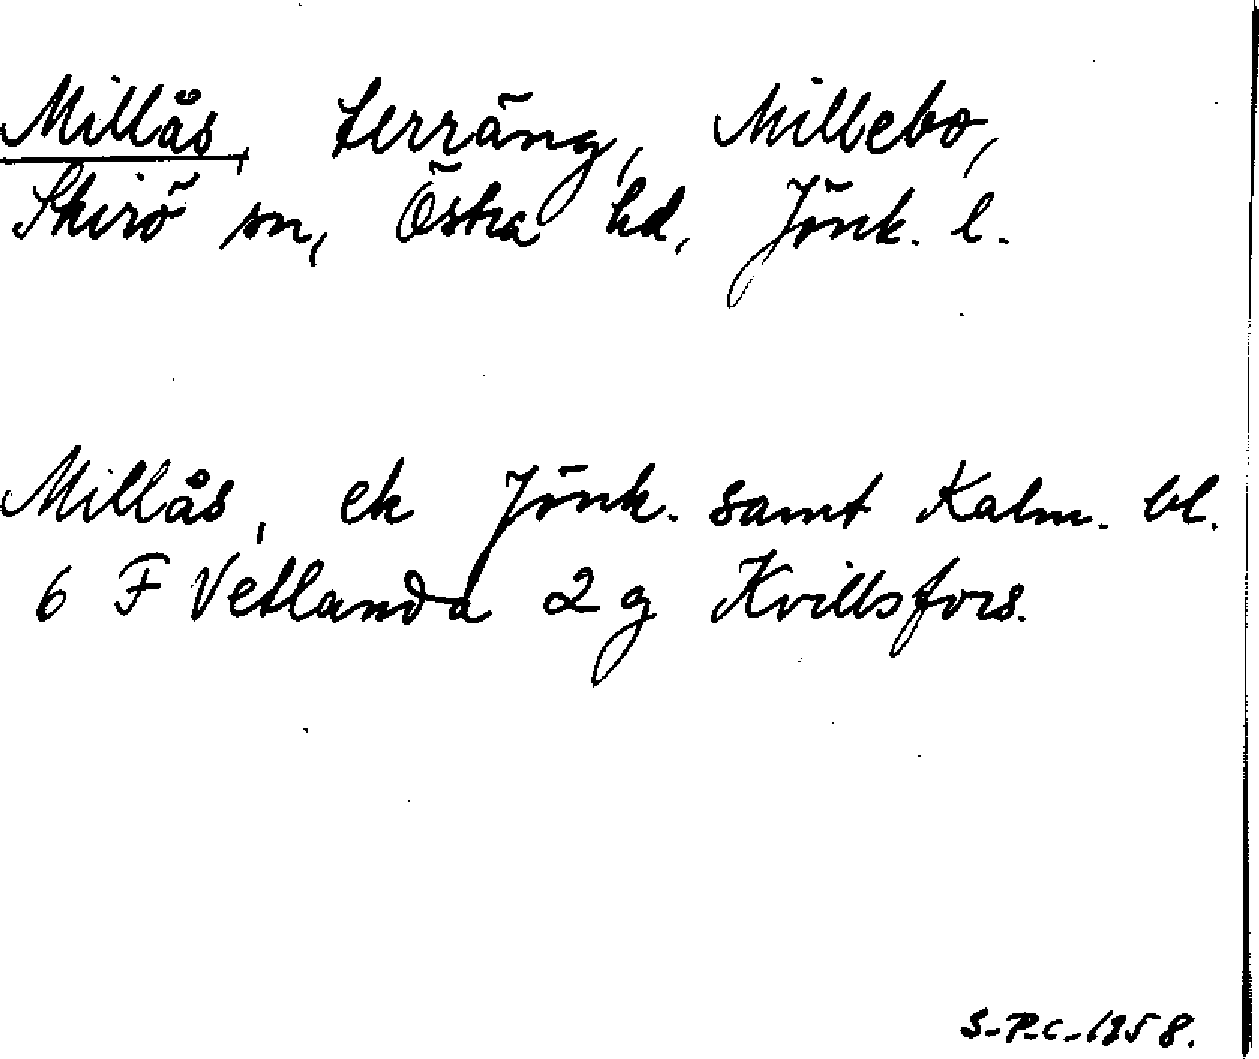 Millås, terräng, Millebo,
Skirö sn, Östra hd, Jönk. l.
Millås, ek Jönk. samt Kalm. bl.
6 F Vetlanda 2 g Kvillsfors.
S-RC-1958.